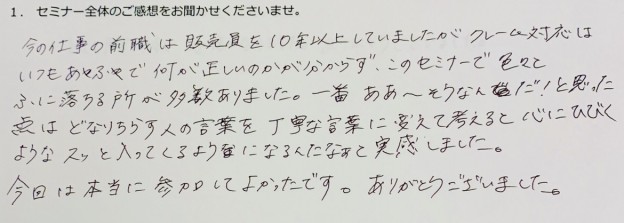 1. セミナー全体のご感想をお聞かせくださいませ。
今の仕事の前職は販売員を10年以上していましたがクレーム対応は
いつもあやふやで何が正しいのかが分からず、このセミナーで色々と
ふに落ちる所が多数ありました。一番 ああ〜そうなんだ!と思った
点はどなりちらす人の言葉を丁寧な言葉に変えて考えると心にひびく
ようなスッと入ってくるようになるんだなぁと実感しました。
今回は本当に参加してよかったです。ありがとうございました。